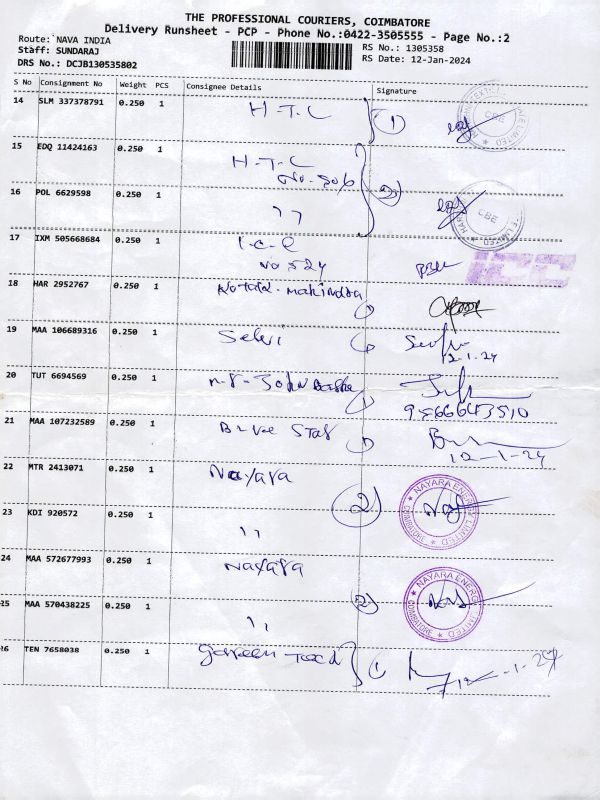 THE PROFESSIONAL COURIERS, COIMBATORE
Delivery Runsheet - PCP - Phone No.:0422-3505555 - Page No.:2
Route:`NAVA INDIA
Staff: SUNDARAJ
DRS No.: DCJB130535802
RS No.: 1305358
RS Date: 12-Jan-2024
S No Consignment No Weight PCS Consignee Details Signature
14 SLM 337378791 0.250 1 H-T-L 1
15 EDQ 11424163 0.250 1 H-T-L
No-506 2
16 POL 6629598 0.250 1 ,,
17 IXM 505668684 0.250 1 I.C.C
No 524 ICC
18 HAR 2952767 0.250 1 Kotak-mahindra
19 MAA 106689316 0.250 1 Selvi
12-1.24
20 TUT 6694569 0.250 1
21 MAA 107232589 0.250 1 Blue Star
12-1-24
22 MTR 2413071 0.250 1 Nayara 2
NAYARA ENERGY LIMITED
COIMBATORE
23 KDI 920572 0.250 1 ,,
24 MAA 572677993 0.250 1 Nayara
NAYARA ENERGY LIMITED
COIMBATORE
25 MAA 570438225 0.250 1 ,, 2
26 TEN 7658038 0.250 1 1 12-1-24